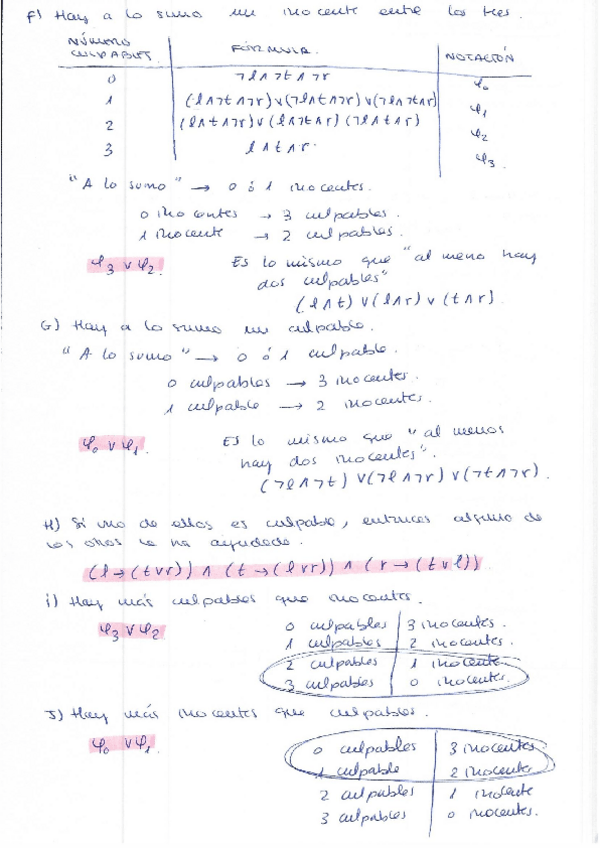 F) Hay a lo sumo un inocente entre los tres.
NÚMERO CULPABLES | FÓRMULA | NOTACIÓN
0 | ¬l∧¬t∧¬r | φ₀
1 | (l∧¬t∧¬r)∨(¬l∧t∧¬r)∨(¬l∧¬t∧r) | φ₁
2 | (l∧t∧¬r)∨(l∧¬t∧r)(¬l∧t∧r) | φ₂
3 | l∧t∧r. | φ₃
"A lo sumo" → 0 ó 1 inocentes.
0 inocentes → 3 culpables.
1 inocente → 2 culpables.
φ₃ ∨ φ₂ Es lo mismo que "al meno hay
dos culpables"
(l∧t)∨(l∧r)∨(t∧r)
G) Hay a lo sumo un culpable.
"A lo sumo" → 0 ó 1 culpable.
0 culpables → 3 inocentes.
1 culpable → 2 inocentes.
φ₀ ∨ φ₁ Es lo mismo que "al menos
hay dos inocentes".
(¬l∧¬t)∨(¬l∧¬r)∨(¬t∧¬r).
H) Si uno de ellos es culpable, entonces alguno de
los otros le ha ayudado.
(l→(t∨r))∧(t→(l∨r))∧(r→(t∨l))
i) Hay más culpables que inocentes.
φ₃ ∨ φ₂
0 culpables | 3 inocentes.
1 culpables | 2 inocentes.
2 culpables | 1 inocente.
3 culpables | 0 inocente.
J) Hay más inocentes que culpables.
φ₀ ∨ φ₁
0 culpables | 3 inocentes.
1 culpable | 2 inocente
2 culpables | 1 inocente
3 culpables | 0 inocentes.